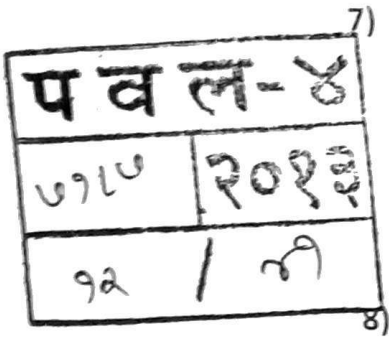 7)
प व ल-४
७१८७ २०१३
१२ /
8)